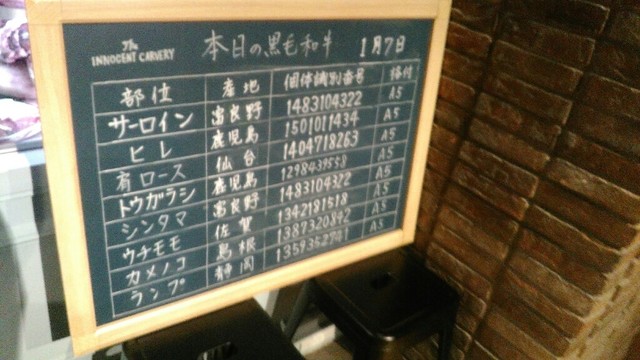 The INNOCENT CARVERY 本日の黒毛和牛 1月7日
部位 産地 個体識別番号 格付
サーロイン 富良野 1483104322 A5
ヒレ 鹿児島 1501011434 A5
肩ロース 仙台 1404718263 A5
トウガラシ 鹿児島 1298439558 A5
シンタマ 富良野 1483104322 A5
ウチモモ 佐賀 1342181518 A5
カメノコ 島根 1387320842 A5
ランプ 静岡